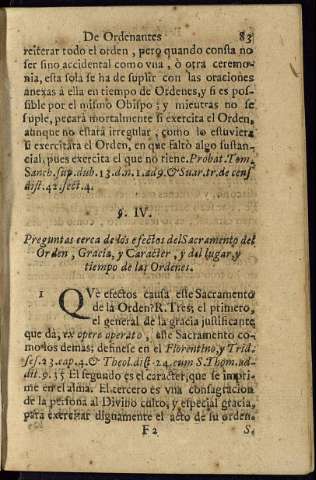 De Ordenantes 83
reiterar todo el orden, pero quando consta no
ser sino accidental como vna, ò otra ceremo-
nia, esta sola se ha de suplir con las oraciones
anexas á ella en tiempo de Ordenes, y si es pos-
sible por el mismo Obispo; y mientras no se
suple, pecará mortalmente si exercita el Orden,
aunque no estará irregular, como lo estuviera
si exercitara el Orden, en que faltò algo sustan-
cial, pues exercita el que no tiene. Probat. Tom.
Sanch. sup. dub. 13. d. n. 1. ad 9. & Suar. tr. de cens
dist. 42. sect. 4.
§. IV.
Preguntas cerca de los efectos del Sacramento del
Orden, Gracia, y Caracter, y del lugar, y
tiempo de las Ordenes.
1 QVe efectos causa este Sacramento
de la Orden? R. Tres; el primero,
el general de la gracia justificante
que dà, ex opere operato, este Sacramento co-
mo los demas; definese en el Florentino, y Trid.
ses. 23. cap. 4. & Theol. dist. 24. cum S. Thom. ad-
dit. q. 35 El segundo es el caracter, que se impri-
me en el alma. El tercero es vna consagracion
de la persona al Divino culto, y especial gracia,
para exercitar dignamente el acto de su orden.
F 2 S.